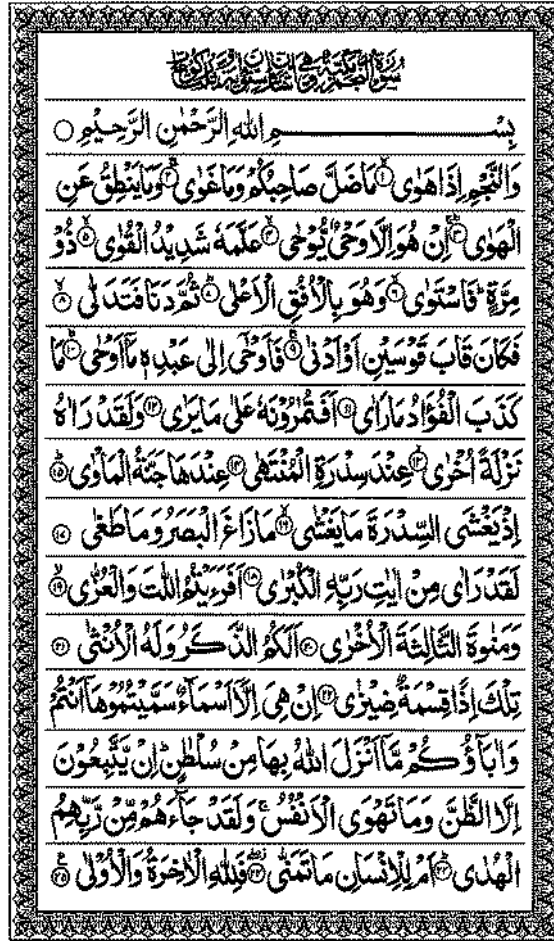 سُوْرَةُ النَّجْمِ مَكِّيَّةٌ وَّهِيَ اثْنَتَانِ وَسِتُّوْنَ اٰيَةً وَّثَلٰثُ رُكُوْعَاتٍ
بِسْمِ اللهِ الرَّحْمٰنِ الرَّحِيْمِ ○
وَالنَّجْمِ اِذَا هَوٰى ۙ﴿۱﴾ مَا ضَلَّ صَاحِبُكُمْ وَمَا غَوٰى ۚ﴿۲﴾ وَمَا يَنْطِقُ عَنِ
الْهَوٰى ؕ﴿۳﴾ اِنْ هُوَ اِلَّا وَحْيٌ يُّوْحٰى ۙ﴿۴﴾ عَلَّمَهٗ شَدِيْدُ الْقُوٰى ۙ﴿۵﴾ ذُوْ
مِرَّةٍ ؕ فَاسْتَوٰى ۙ﴿۶﴾ وَهُوَ بِالْاُفُقِ الْاَعْلٰى ؕ﴿۷﴾ ثُمَّ دَنَا فَتَدَلّٰى ۙ﴿۸﴾
فَكَانَ قَابَ قَوْسَيْنِ اَوْ اَدْنٰى ۚ﴿۹﴾ فَاَوْحٰۤى اِلٰى عَبْدِهٖ مَاۤ اَوْحٰى ؕ﴿۱۰﴾ مَا
كَذَبَ الْفُؤَادُ مَا رَاٰى ﴿۱۱﴾ اَفَتُمٰرُوْنَهٗ عَلٰى مَا يَرٰى ﴿۱۲﴾ وَلَقَدْ رَاٰهُ
نَزْلَةً اُخْرٰى ۙ﴿۱۳﴾ عِنْدَ سِدْرَةِ الْمُنْتَهٰى ﴿۱۴﴾ عِنْدَهَا جَنَّةُ الْمَاْوٰى ؕ﴿۱۵﴾
اِذْ يَغْشَى السِّدْرَةَ مَا يَغْشٰى ۙ﴿۱۶﴾ مَا زَاغَ الْبَصَرُ وَمَا طَغٰى ﴿۱۷﴾
لَقَدْ رَاٰى مِنْ اٰيٰتِ رَبِّهِ الْكُبْرٰى ﴿۱۸﴾ اَفَرَءَيْتُمُ اللّٰتَ وَالْعُزّٰى ۙ﴿۱۹﴾
وَمَنٰوةَ الثَّالِثَةَ الْاُخْرٰى ﴿۲۰﴾ اَلَكُمُ الذَّكَرُ وَلَهُ الْاُنْثٰى ﴿۲۱﴾
تِلْكَ اِذًا قِسْمَةٌ ضِيْزٰى ﴿۲۲﴾ اِنْ هِيَ اِلَّاۤ اَسْمَآءٌ سَمَّيْتُمُوْهَاۤ اَنْتُمْ
وَاٰبَآؤُكُمْ مَّاۤ اَنْزَلَ اللهُ بِهَا مِنْ سُلْطٰنٍ ؕ اِنْ يَّتَّبِعُوْنَ
اِلَّا الظَّنَّ وَمَا تَهْوَى الْاَنْفُسُ ۚ وَلَقَدْ جَآءَهُمْ مِّنْ رَّبِّهِمُ
الْهُدٰى ؕ﴿۲۳﴾ اَمْ لِلْاِنْسَانِ مَا تَمَنّٰى ۖ﴿۲۴﴾ فَلِلّٰهِ الْاٰخِرَةُ وَالْاُوْلٰى ﴿۲۵﴾